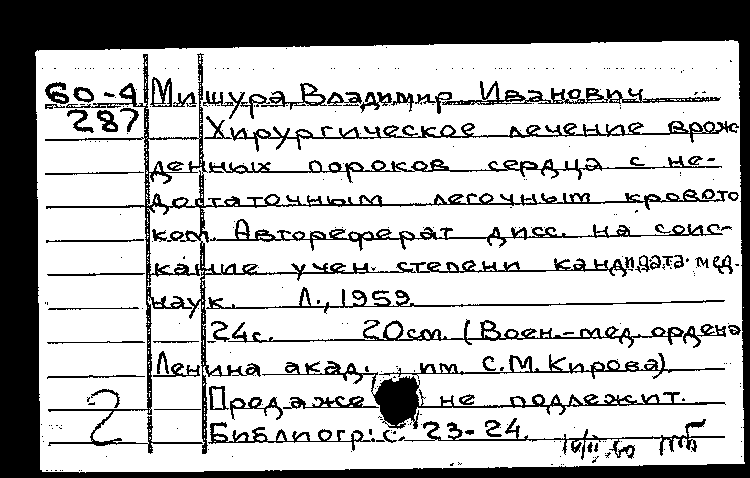 60-4 Мишура, Владимир Иванович
287 Хирургическое лечение врож
денных пороков сердца с не-
достаточным легочным кровото
ком. Автореферат дисс. на соис-
кание учен. степени кандидата мед.
наук. Л., 1959.
24с. 20см. (Воен.-мед. ордена
Ленина акад. им. С.М. Кирова).
Продаже не подлежит.
2 Библиогр: с. 23-24.